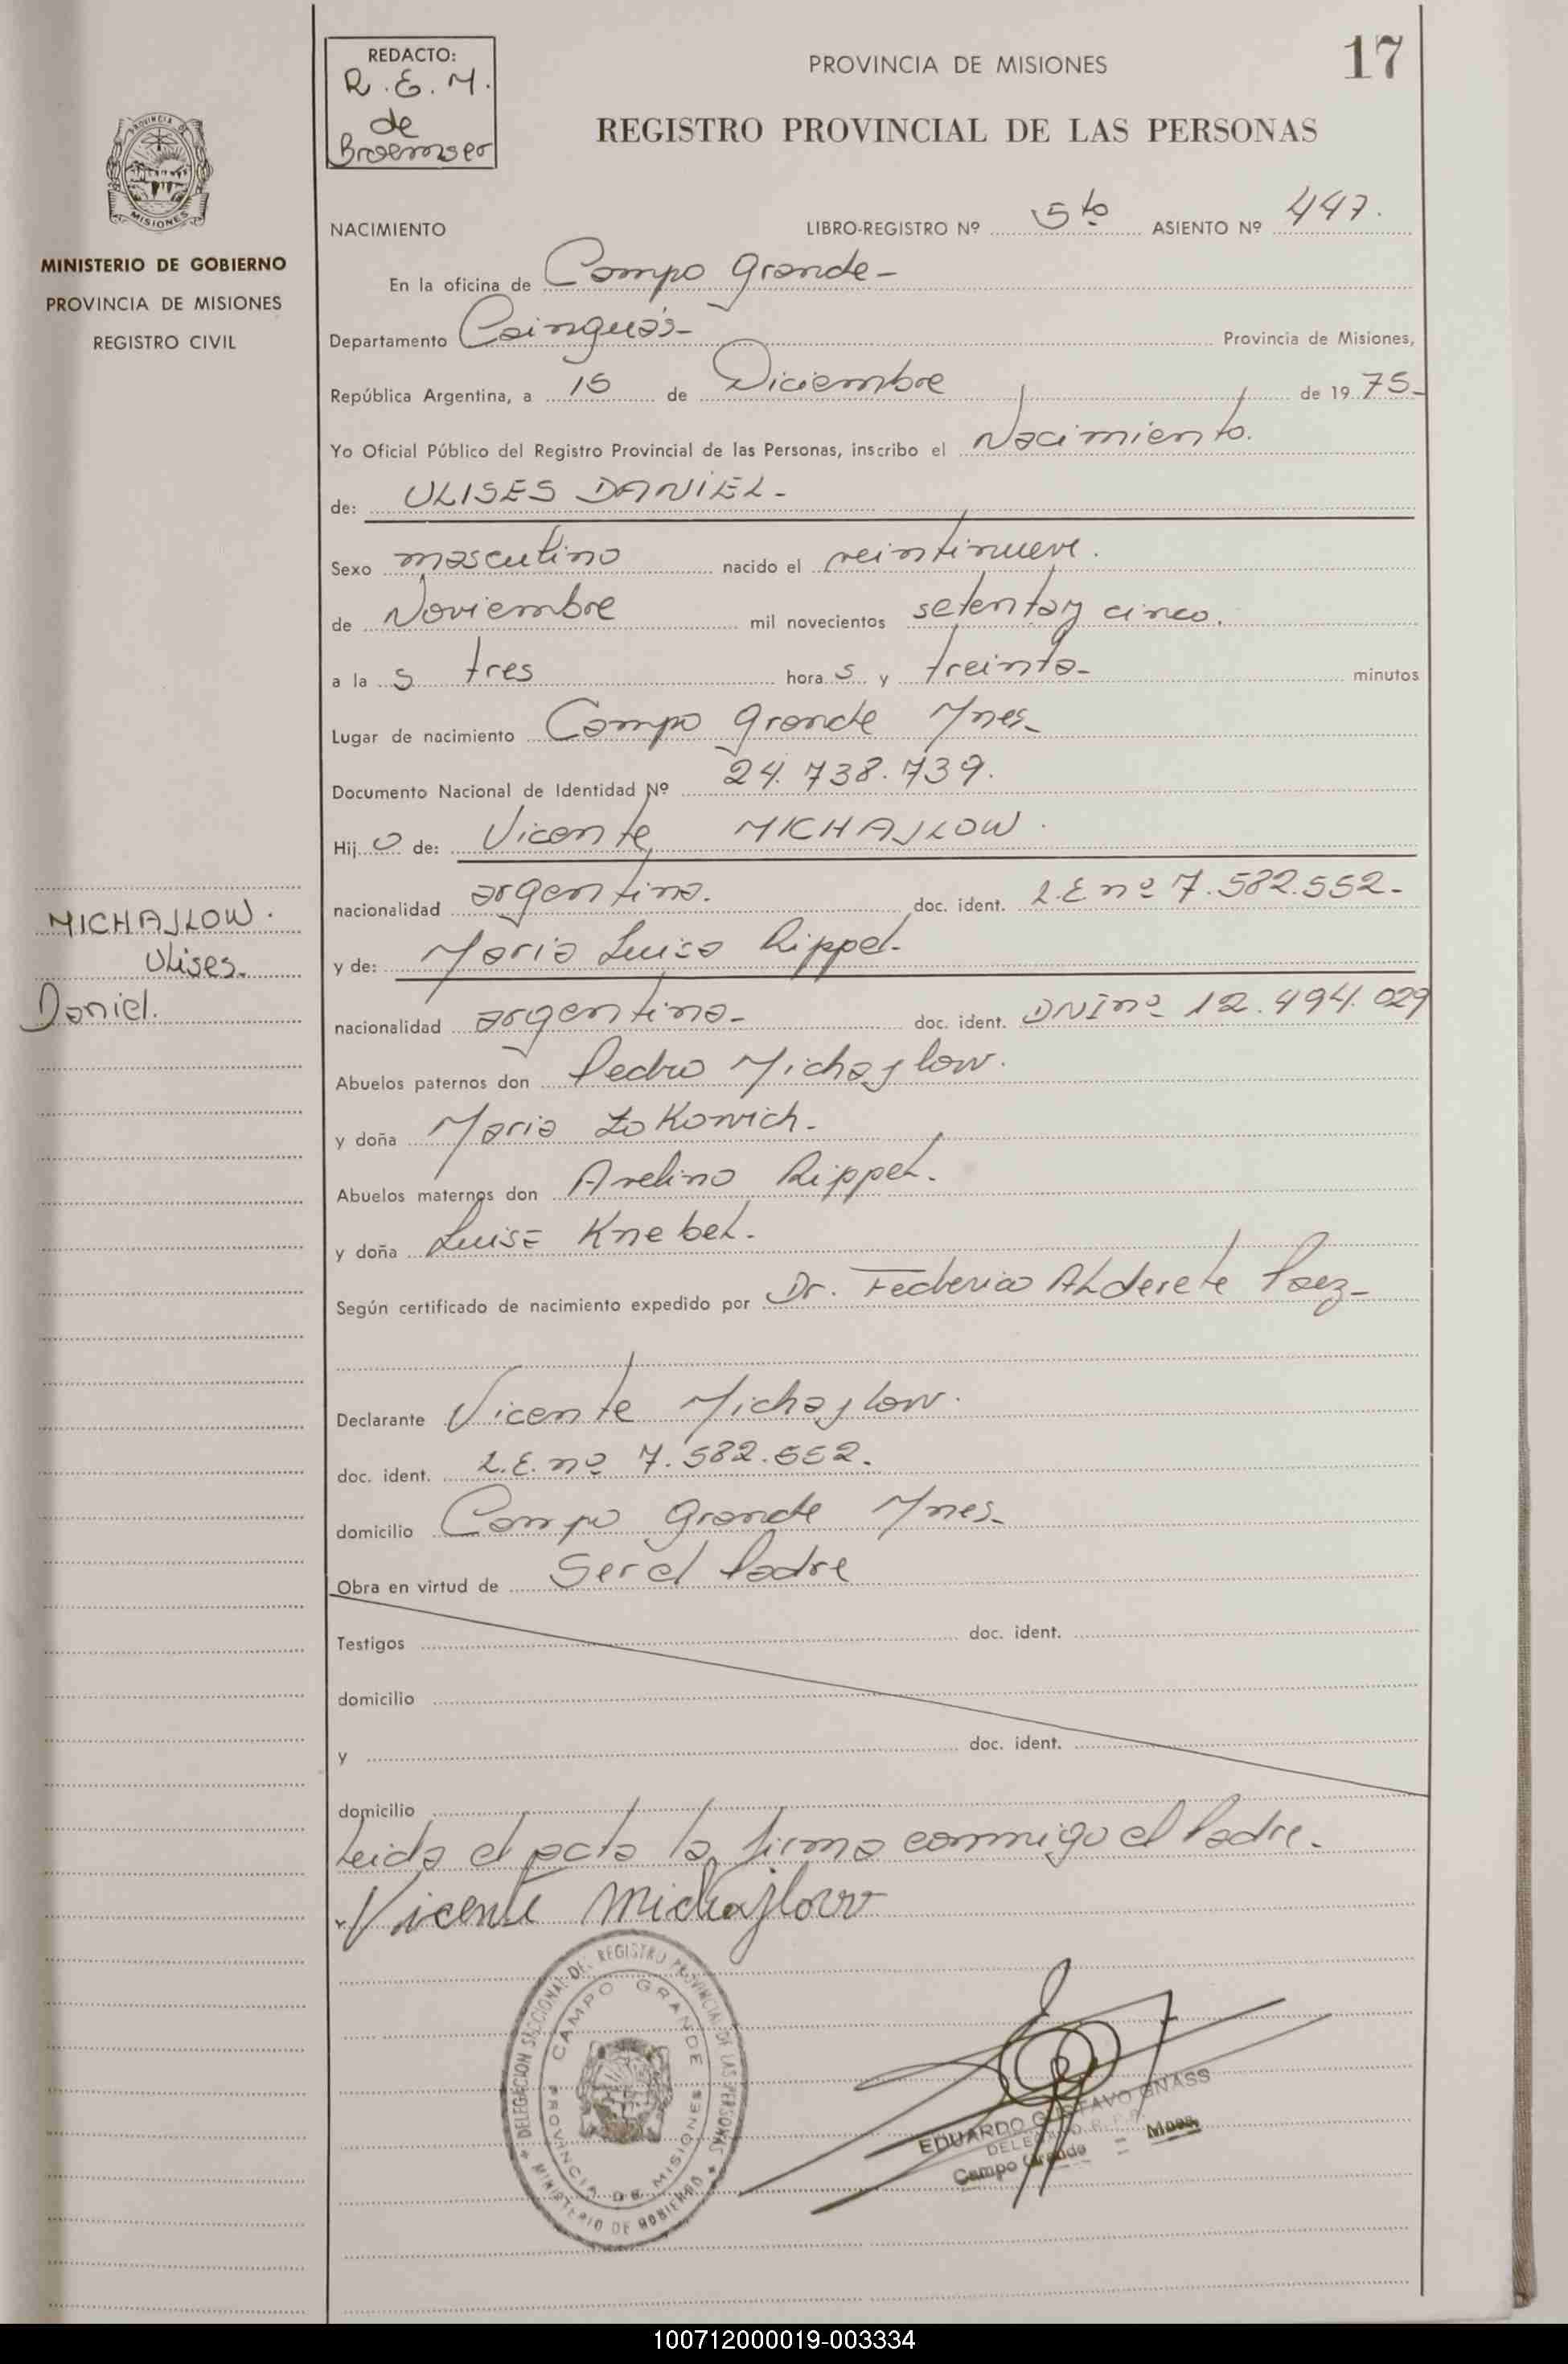 REDACTO:
R.E.M.
de
Broemser
PROVINCIA DE MISIONES
17
REGISTRO PROVINCIAL DE LAS PERSONAS
PROVINCIA DE
MISIONES
MINISTERIO DE GOBIERNO
PROVINCIA DE MISIONES
REGISTRO CIVIL
NACIMIENTO LIBRO-REGISTRO Nº 5to ASIENTO Nº 447.
En la oficina de Campo Grande-
Departamento Cainguás- Provincia de Misiones,
República Argentina, a 15 de Diciembre de 1975-
Yo Oficial Público del Registro Provincial de las Personas, inscribo el Nacimiento.
de: ULISES DANIEL-
Sexo masculino nacido el veintinueve.
de Noviembre mil novecientos setenta y cinco.
a la s tres hora s y treinta- minutos
Lugar de nacimiento Campo Grande Mnes-
Documento Nacional de Identidad Nº 24.738.739.
Hij o de: Vicente MICHAJLOW.
nacionalidad argentina. doc. ident. L.E nº 7.582.552-
y de: Maria Luisa Rippel-
nacionalidad argentina- doc. ident. DNI nº 12.494.029
Abuelos paternos don Pedro Michajlow.
y doña Maria Zokowich-
Abuelos maternos don Avelino Rippel.
y doña Luisa Knebel.
Según certificado de nacimiento expedido por Dr. Federico Alderete Paez-
Declarante Vicente Michajlow.
doc. ident. L.E. nº 7.582.552.
domicilio Campo Grande Mnes-
Obra en virtud de Ser el Padre
Testigos doc. ident.
domicilio
y doc. ident.
domicilio
Leida el acta la firma conmigo el Padre.
Vicente Michajlow
MICHAJLOW.
Ulises
Daniel.
DELEGACION SECCIONAL DEL REGISTRO PROVINCIAL DE LAS PERSONAS
MINISTERIO DE GOBIERNO
CAMPO GRANDE
PROVINCIA DE MISIONES
EDUARDO GUSTAVO GNASS
DELEGADO R.P.P.
Campo Grande = Mnes.
100712000019-003334